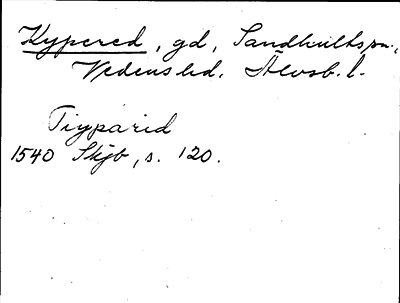 Kypered, gd, Sandhults sn.,
Vedens hd. Älvsb. l.
Tiyparid
1540 Skjb, s. 120.